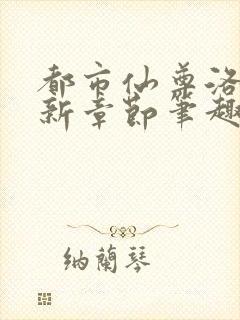 都市仙尊洛
新章節筆趣
纳蘭琴